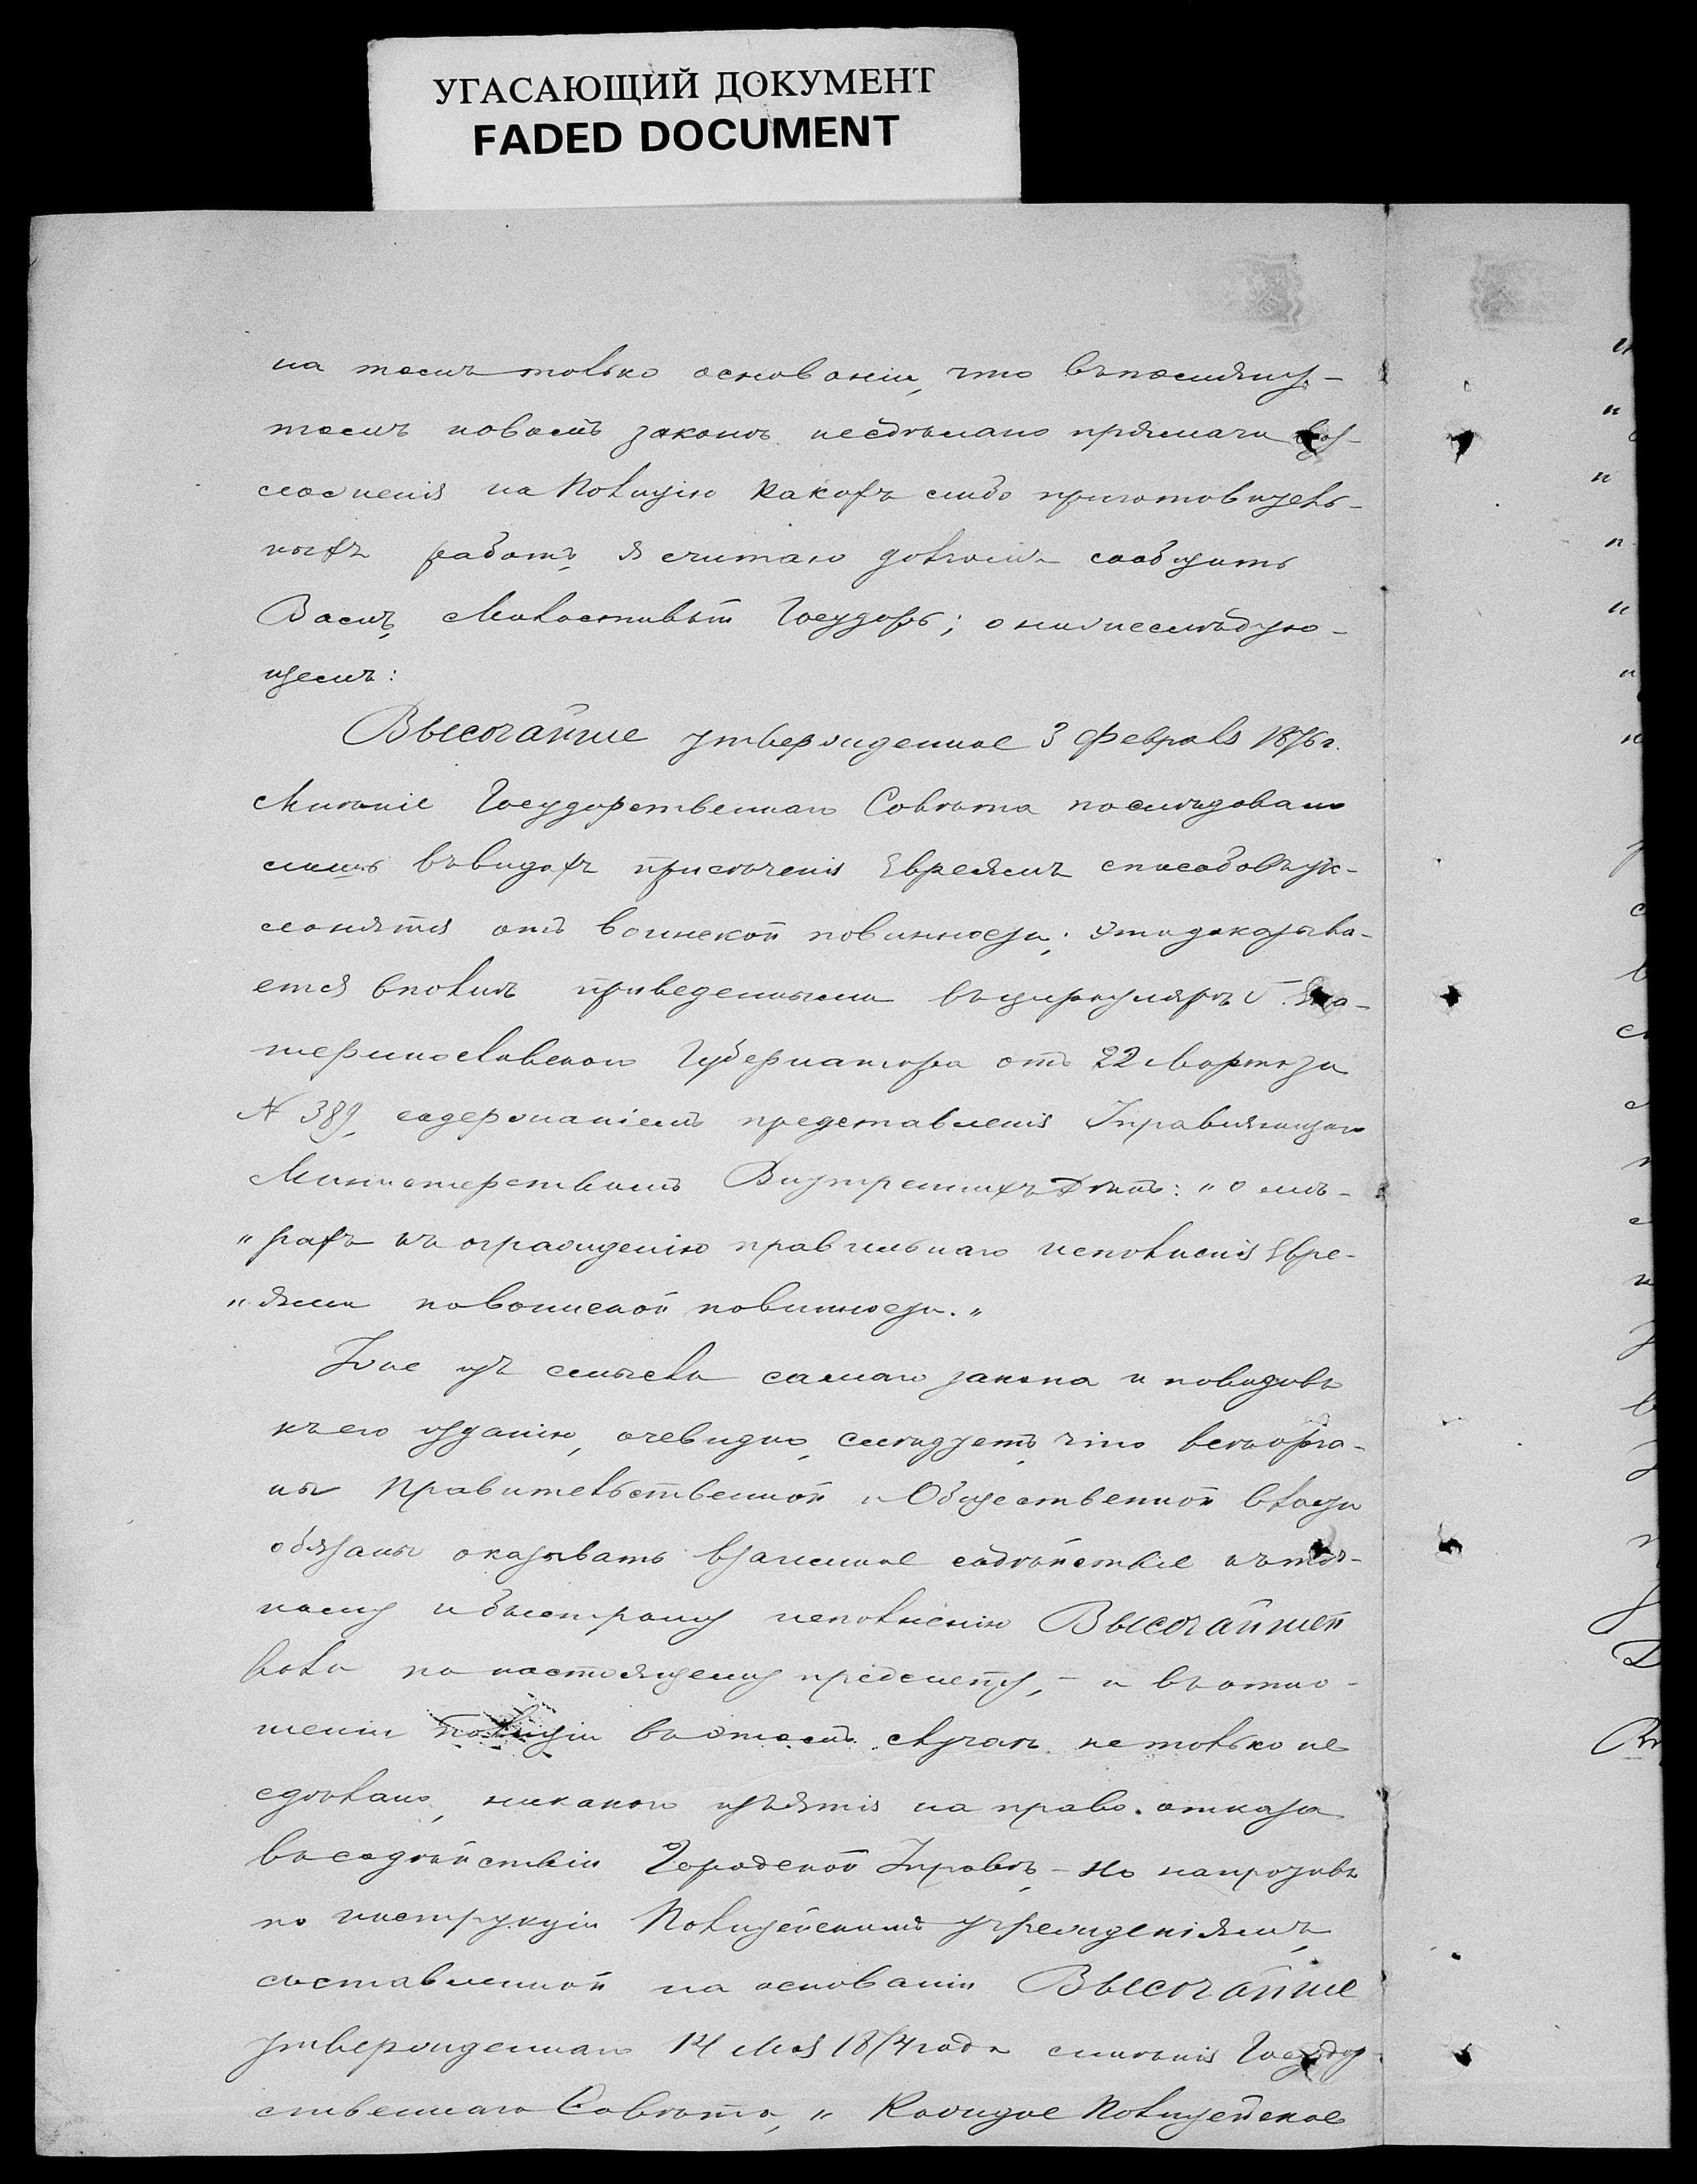 УГАСАЮЩИЙ ДОКУМЕНТ
FADED DOCUMENT
на томъ только основаніи, что въ помяну-
томъ новомъ законѣ не сдѣлано прямаго воз-
ложенія на Полицію какихъ либо приготовитель-
ныхъ работъ, я считаю долгомъ сообщить
Вамъ, Милостивый Государь, о нижеслѣдую-
щемъ:
Высочайше утвержденное 3 Февраля 1876 г.
Мнѣніе Государственнаго Совѣта послѣдовало
лишь въ видахъ пресѣченія Евреямъ способовъ ук-
лонятся отъ воинской повинности; это доказыва-
ется вполнѣ приведеннымъ въ циркулярѣ Г. Ека-
теринославскаго Губернатора отъ 22 Марта за
№ 389, содержаніемъ представленія Управляющаго
Министерствомъ Внутреннихъ Дѣлъ: "о мѣ-
"рахъ къ огражденію правильнаго исполненія Евре-
"ями по воинской повинности."
Уже изъ смысла самаго закона и поводовъ
къ его изданію, очевидно, слѣдуетъ, что всѣ орга-
ны Правительственной и Общественной власти
обязаны оказывать взаимное содѣйствіе къ точ-
ному и быстрому исполненію Высочайшей
воли по настоящему предмету, - и въ отно-
шеніи Полиціи въ этомъ случаѣ не только не
сдѣлано, никакого изъятія на право отказа
въ содѣйствіи Городской Управѣ, - но напротивъ
по инструкціи Полицейскимъ учрежденіямъ,
составленной на основаніи Высочайше
утвержденнаго 14 Мая 1874 года мнѣнія Государ-
ственнаго Совѣта, "Каждое Полицейское